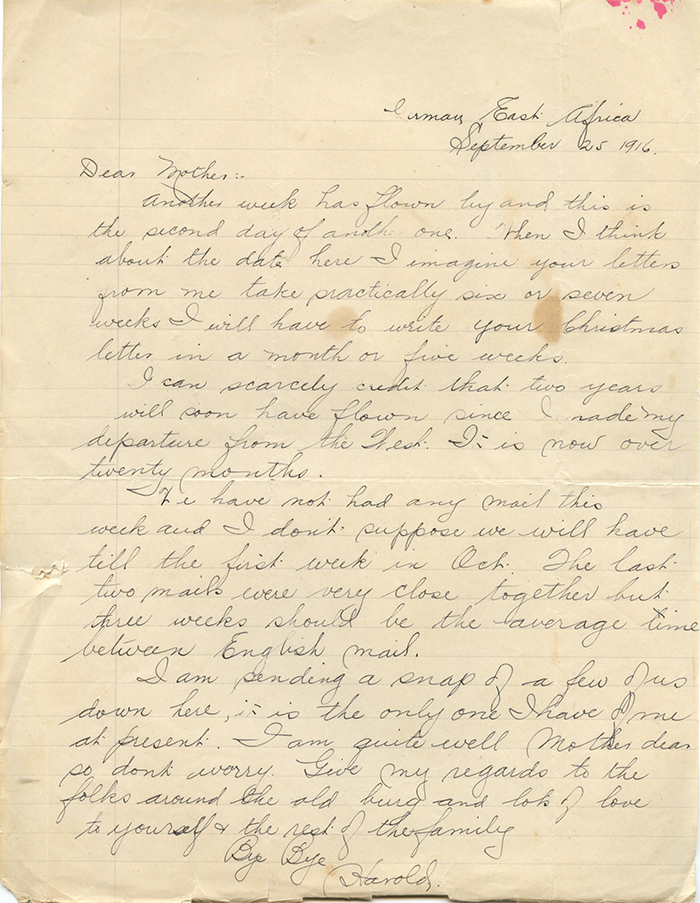 German East Africa
September 25 1916.
Dear Mother:-
Another week has flown by and this is
the second day of another one. When I think
about the date here I imagine your letters
from me take practically six or seven
weeks I will have to write your Christmas
letter in a month or five weeks.
I can scarcely credit that two years
will soon have flown since I made my
departure from the West. It is now over
twenty months.
We have not had any mail this
week and I don't suppose we will have
till the first week in Oct. The last
two mails were very close together but
three weeks should be the average time
between English mail.
I am sending a snap of a few of us
down here, it is the only one I have of me
at present. I am quite well Mother dear
so dont worry. Give my regards to the
folks around the old burg and lots of love
to yourself & the rest of the family
Bye Bye
Harold.